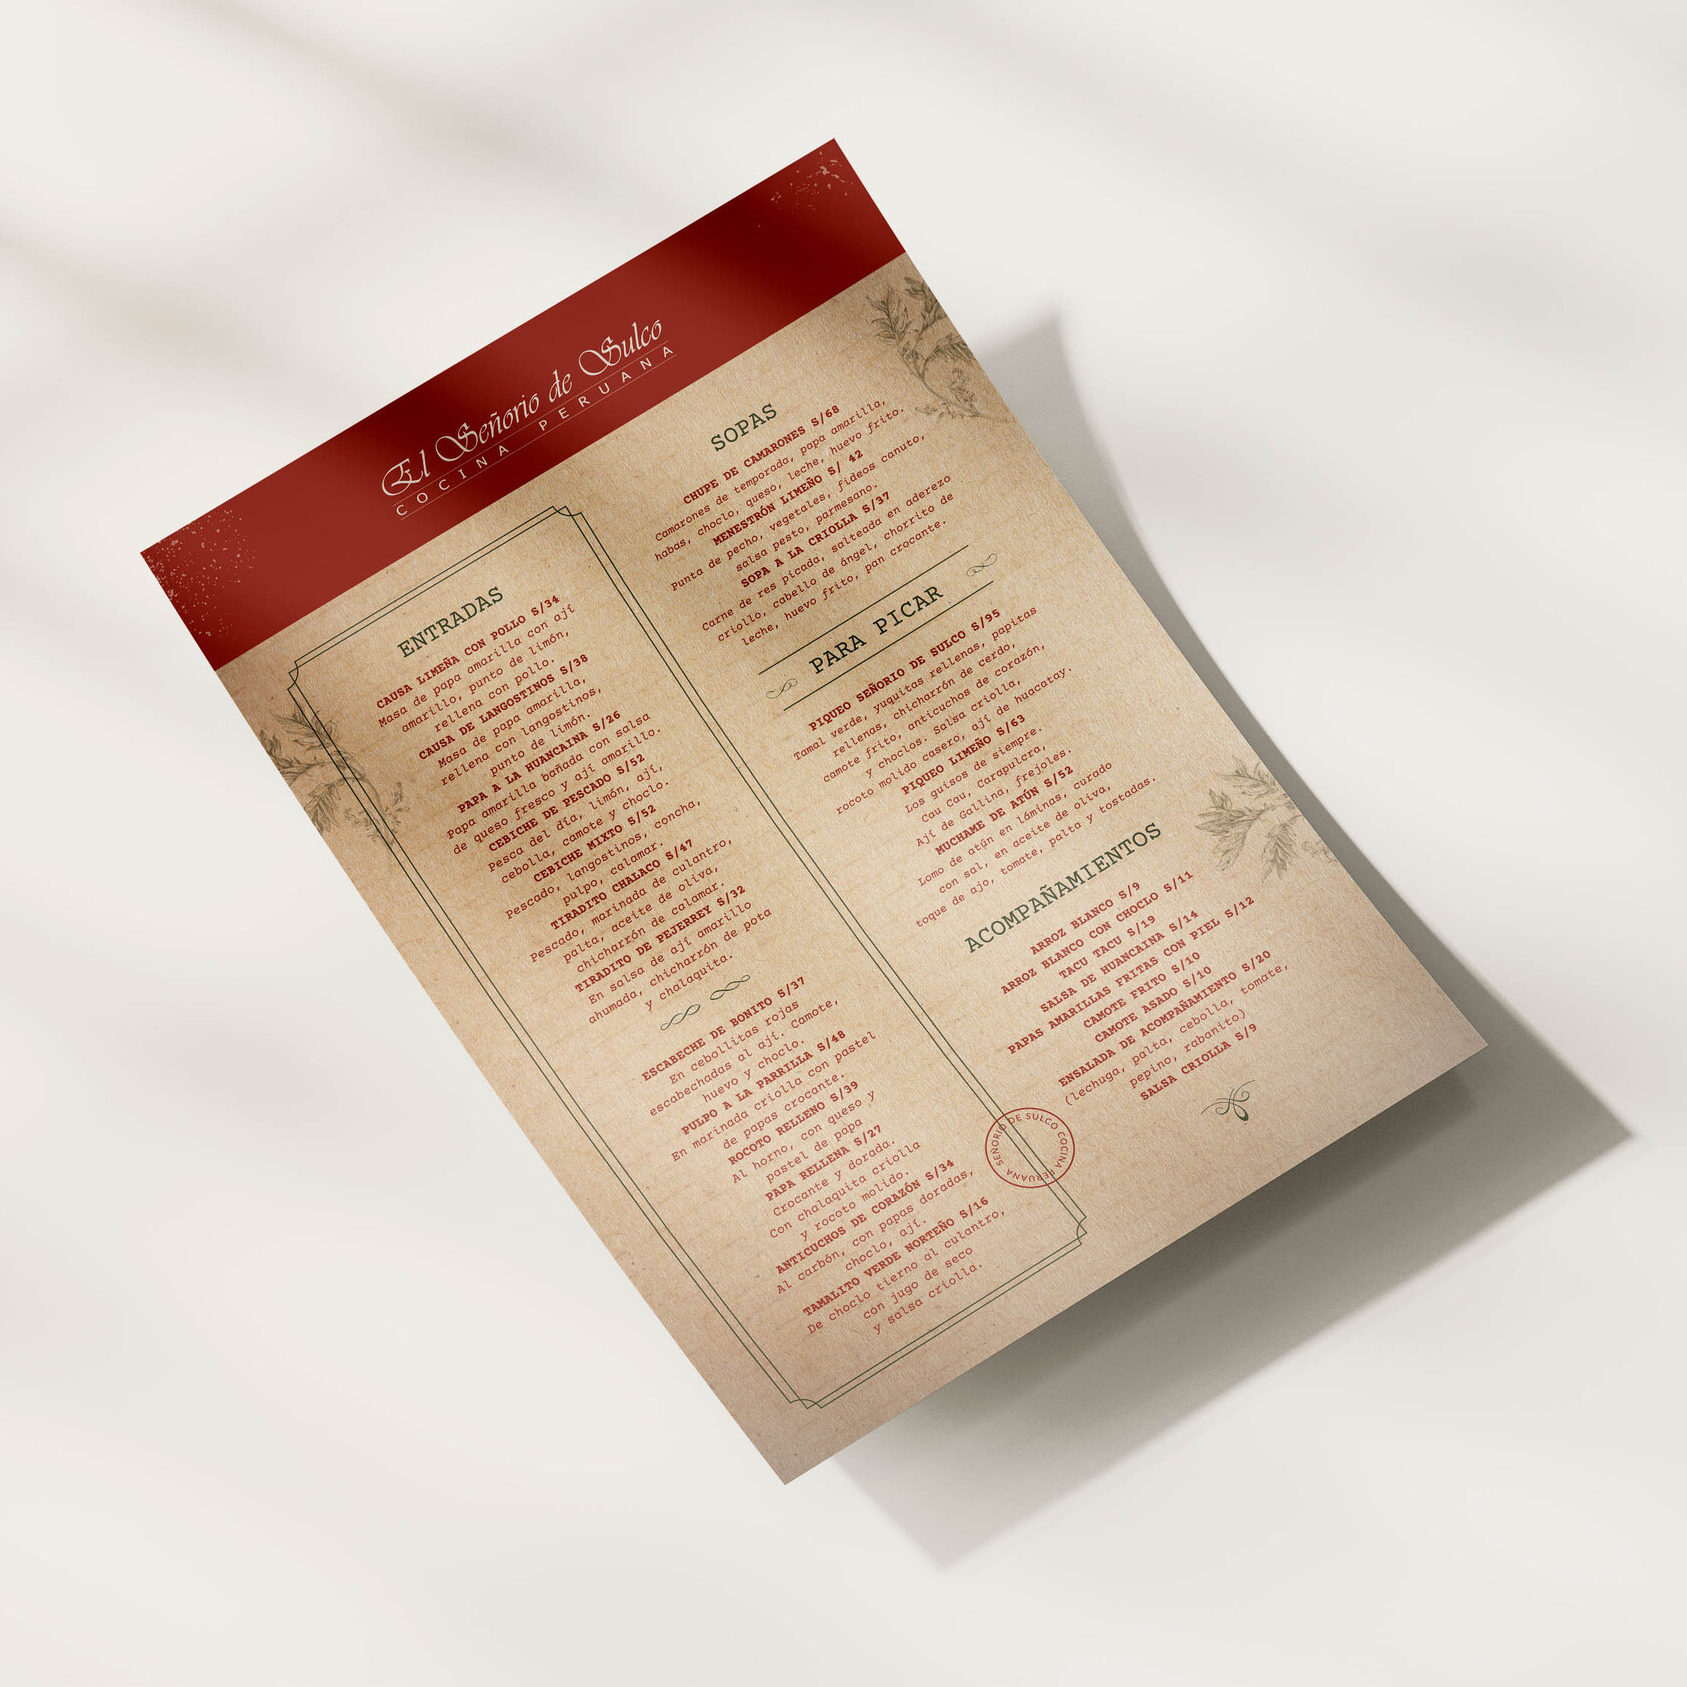 El Señorio de Sulco
COCINA PERUANA
ENTRADAS
CAUSA LIMEÑA CON POLLO S/34
Masa de papa amarilla con ají
amarillo, punto de limón,
rellena con pollo.
CAUSA DE LANGOSTINOS S/38
Masa de papa amarilla,
rellena con langostinos,
punto de limón.
PAPA A LA HUANCAINA S/26
Papa amarilla bañada con salsa
de queso fresco y ají amarillo.
CEBICHE DE PESCADO S/52
Pesca del día, limón, ají,
cebolla, camote y choclo.
CEBICHE MIXTO S/52
Pescado, langostinos, concha,
pulpo, calamar.
TIRADITO CHALACO S/47
Pescado, marinada de culantro,
palta, aceite de oliva,
chicharrón de calamar.
TIRADITO DE PEJERREY S/32
En salsa de ají amarillo
ahumada, chicharrón de pota
y chalaquita.
ESCABECHE DE BONITO S/37
En cebollitas rojas
escabechadas al ají. Camote,
huevo y choclo.
PULPO A LA PARRILLA S/48
En marinada criolla con pastel
de papas crocante.
ROCOTO RELLENO S/39
Al horno, con queso y
pastel de papa
PAPA RELLENA S/27
Crocante y dorada.
Con chalaquita criolla
y rocoto molido.
ANTICUCHOS DE CORAZÓN S/34
Al carbón, con papas doradas,
choclo, ají.
TAMALITO VERDE NORTEÑO S/16
De choclo tierno al culantro,
con jugo de seco
y salsa criolla.
SOPAS
CHUPE DE CAMARONES S/68
Camarones de temporada, papa amarilla,
habas, choclo, queso, leche, huevo frito.
MENESTRÓN LIMEÑO S/ 42
Punta de pecho, vegetales, fideos canuto,
salsa pesto, parmesano.
SOPA A LA CRIOLLA S/37
Carne de res picada, salteada en aderezo
criollo, cabello de ángel, chorrito de
leche, huevo frito, pan crocante.
PARA PICAR
PIQUEO SEÑORIO DE SULCO S/95
Tamal verde, yuquitas rellenas, papitas
rellenas, chicharrón de cerdo,
camote frito, anticuchos de corazón,
y choclos. Salsa criolla,
rocoto molido casero, ají de huacatay.
PIQUEO LIMEÑO S/63
Los guisos de siempre.
Cau Cau, Carapulcra,
Ají de Gallina, frejoles.
MUCHAME DE ATÚN S/52
Lomo de atún en láminas, curado
con sal, en aceite de oliva,
toque de ajo, tomate, palta y tostadas.
ACOMPAÑAMIENTOS
ARROZ BLANCO S/9
ARROZ BLANCO CON CHOCLO S/11
TACU TACU S/19
SALSA DE HUANCAINA S/14
PAPAS AMARILLAS FRITAS CON PIEL S/12
CAMOTE FRITO S/10
CAMOTE ASADO S/10
ENSALADA DE ACOMPAÑAMIENTO S/20
(lechuga, palta, cebolla, tomate,
pepino, rabanito)
SALSA CRIOLLA S/9
SEÑORIO DE SULCO COCINA PERUANA